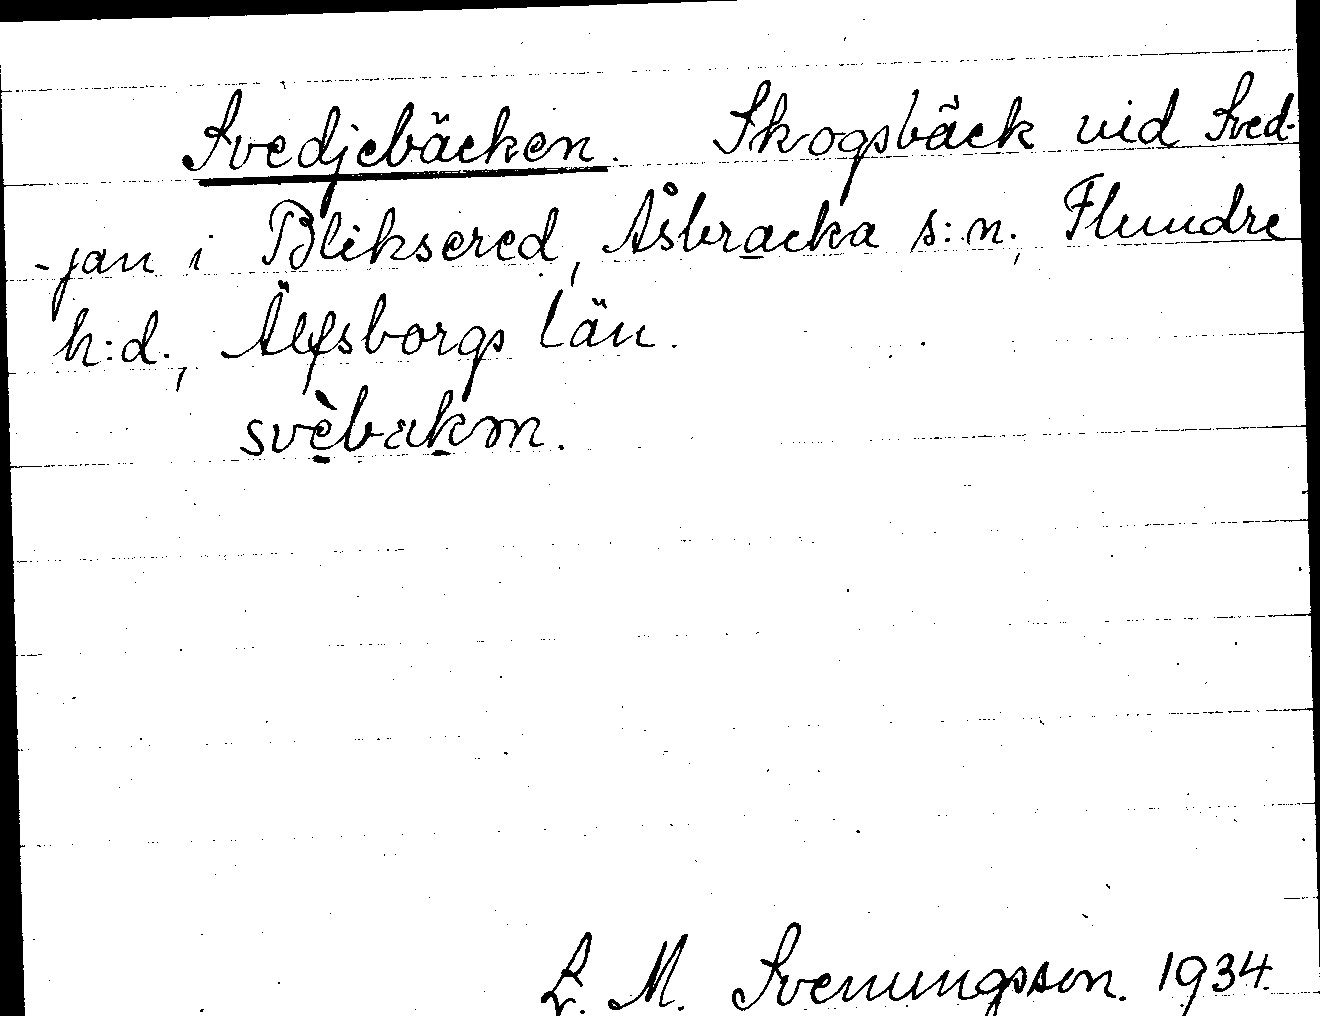 Svedjebäcken. Skogsbäck vid Sved-
-jan i Bliksered, Åsbracka s:n., Flundre
h:d., Älfsborgs län.
svèbakən.
L. M. Svenungsson. 1934.